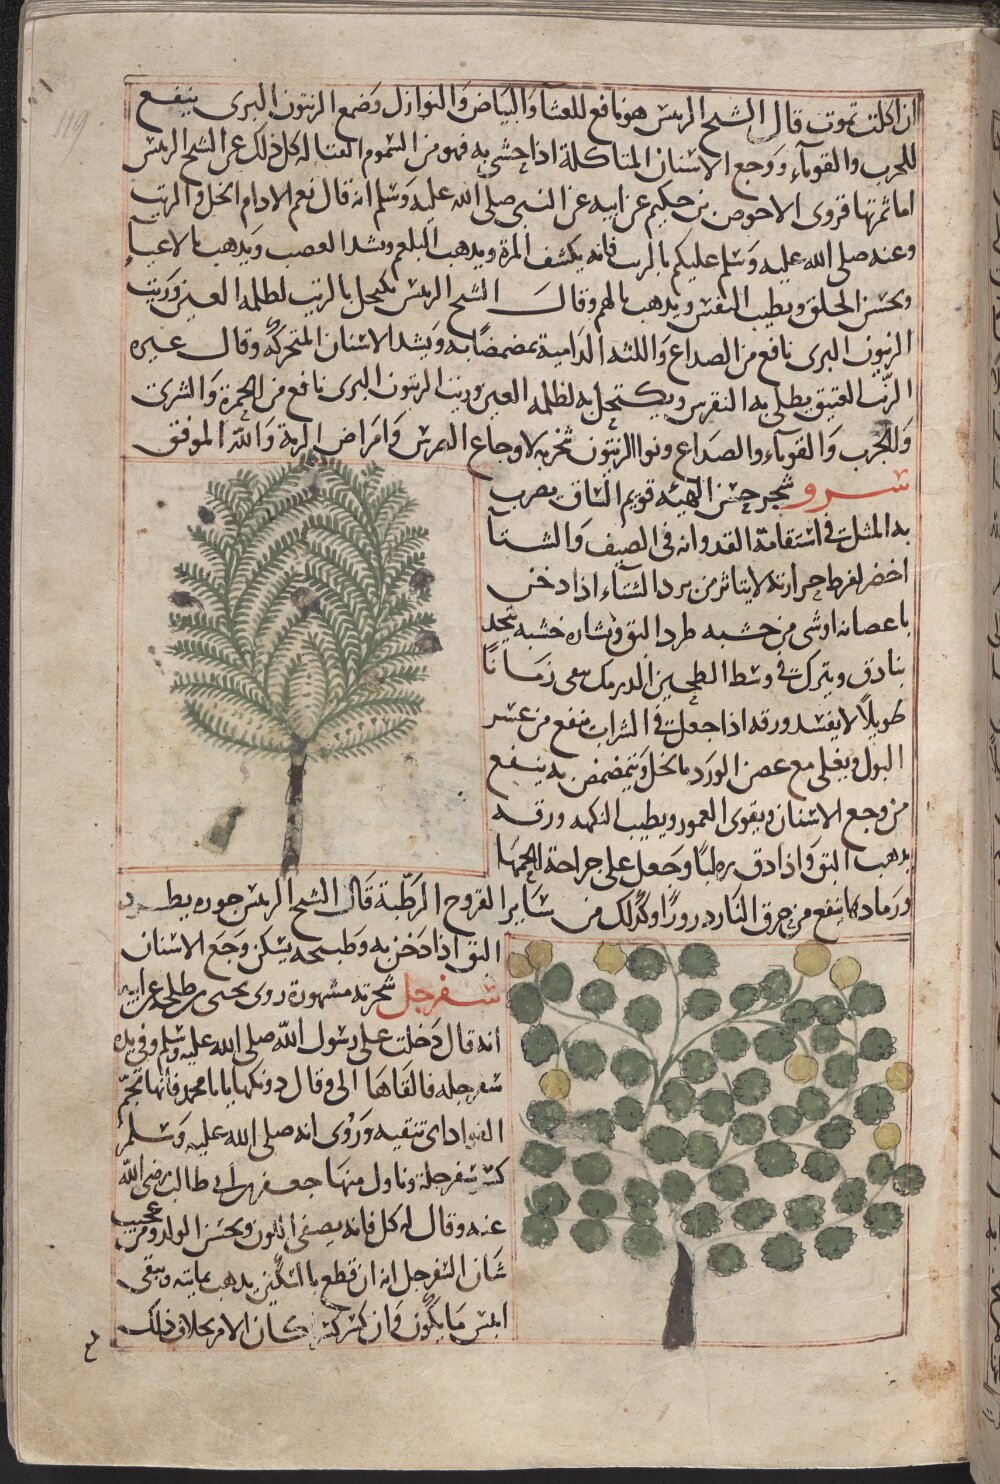 119
ان اكلت تموت قال الشيخ الريس هو نافع للعشا والبياض والنوازل وضمغ الزيتون البرى ينفع
للجرب والقوباء ووجع الاسنان المتاكلة اذا حشى به فهو من السموم القتاله كل ذلك عن الشيخ الريس
اما ثمرتها فروى الاحوص بن حكيم عن ابيه عن النبى صلى الله عليه وسلم انه قال نعم الادام الخل والزيت
وعنه صلى الله عليه وسلم عليكم بالزيت فانه يكشف المرة ويدهب البلغم ويشد العصب ويدهب بالاعياء
ويحسن الخلق ويطيب النفس ويدهب بالهم وقال الشيخ الريس يكتحل بالزيت لظلمه العين وزيت
الزيتون البرى نافع من الصداع واللثه الدامية تمضمضا به ويشد الاسنان المتحركه وقال غيره
الزيت العتيق يطلى به النقرس ويكتحل به لظلمه العين وزيت الزيتون البرى نافع من الحمرة والشرى
وللجرب والقوباء والصداع ونوا الزيتون تبخر به لاوجاع الضرس وامراض الرية والله الموفق
سرو شجر حسن الهيئه قويم الساق يضرب
به المثل فى استقامة القد وانه فى الصيف والشتا
اخضر لفرط حرارته لا يتاثر من برد الشتاء اذا دخن
باغصانه او شى من خشبه طرد البق ونشاره خشبه تتخد
بنادق ويترك فى وسط الطحين الدرمك يبقى زمانا
طويلا لا يفسد ورقه اذا جعلت فى الشراب ينفع من عسر
البول ويغلى مع عصن الورد بالخل ويتمضمض به ينفع
من وجع الاسنان ويقوى العمور ويطيب النكهه ورقه
يدهب البق واذا دق رطبا وجعل على جراحة الحمها
ورمادها ينفع من حرق النار درورا وكذلك من سائر القروح الرطبة قال الشيخ الريس جوزه يطرد
البق اذا دخن به وطبيخه يسكن وجع الاسنان
سفرجل شجرته مشهورة روى يحيى بن طلحه عن ابيه
انه قال دخلت على رسول الله صلى الله عليه وسلم وفى يده
سفرجله فالقاها الى وقال دونكها يابا محمد فانها تجم
الفواد اى تنقيه وروى انه صلى الله عليه وسلم
كسر سفرجلة وناول منها جعفر بن ابى طالب رضى الله
عنه وقال له كل فانه يصفى اللون ويحسن الولد ومن عجيب
شان السفرجل انه ان قطع بالسكين يدهب مايته ويبقى
ايبس ما يكون وان كسر كسرا كان الامر بخلاف ذلك